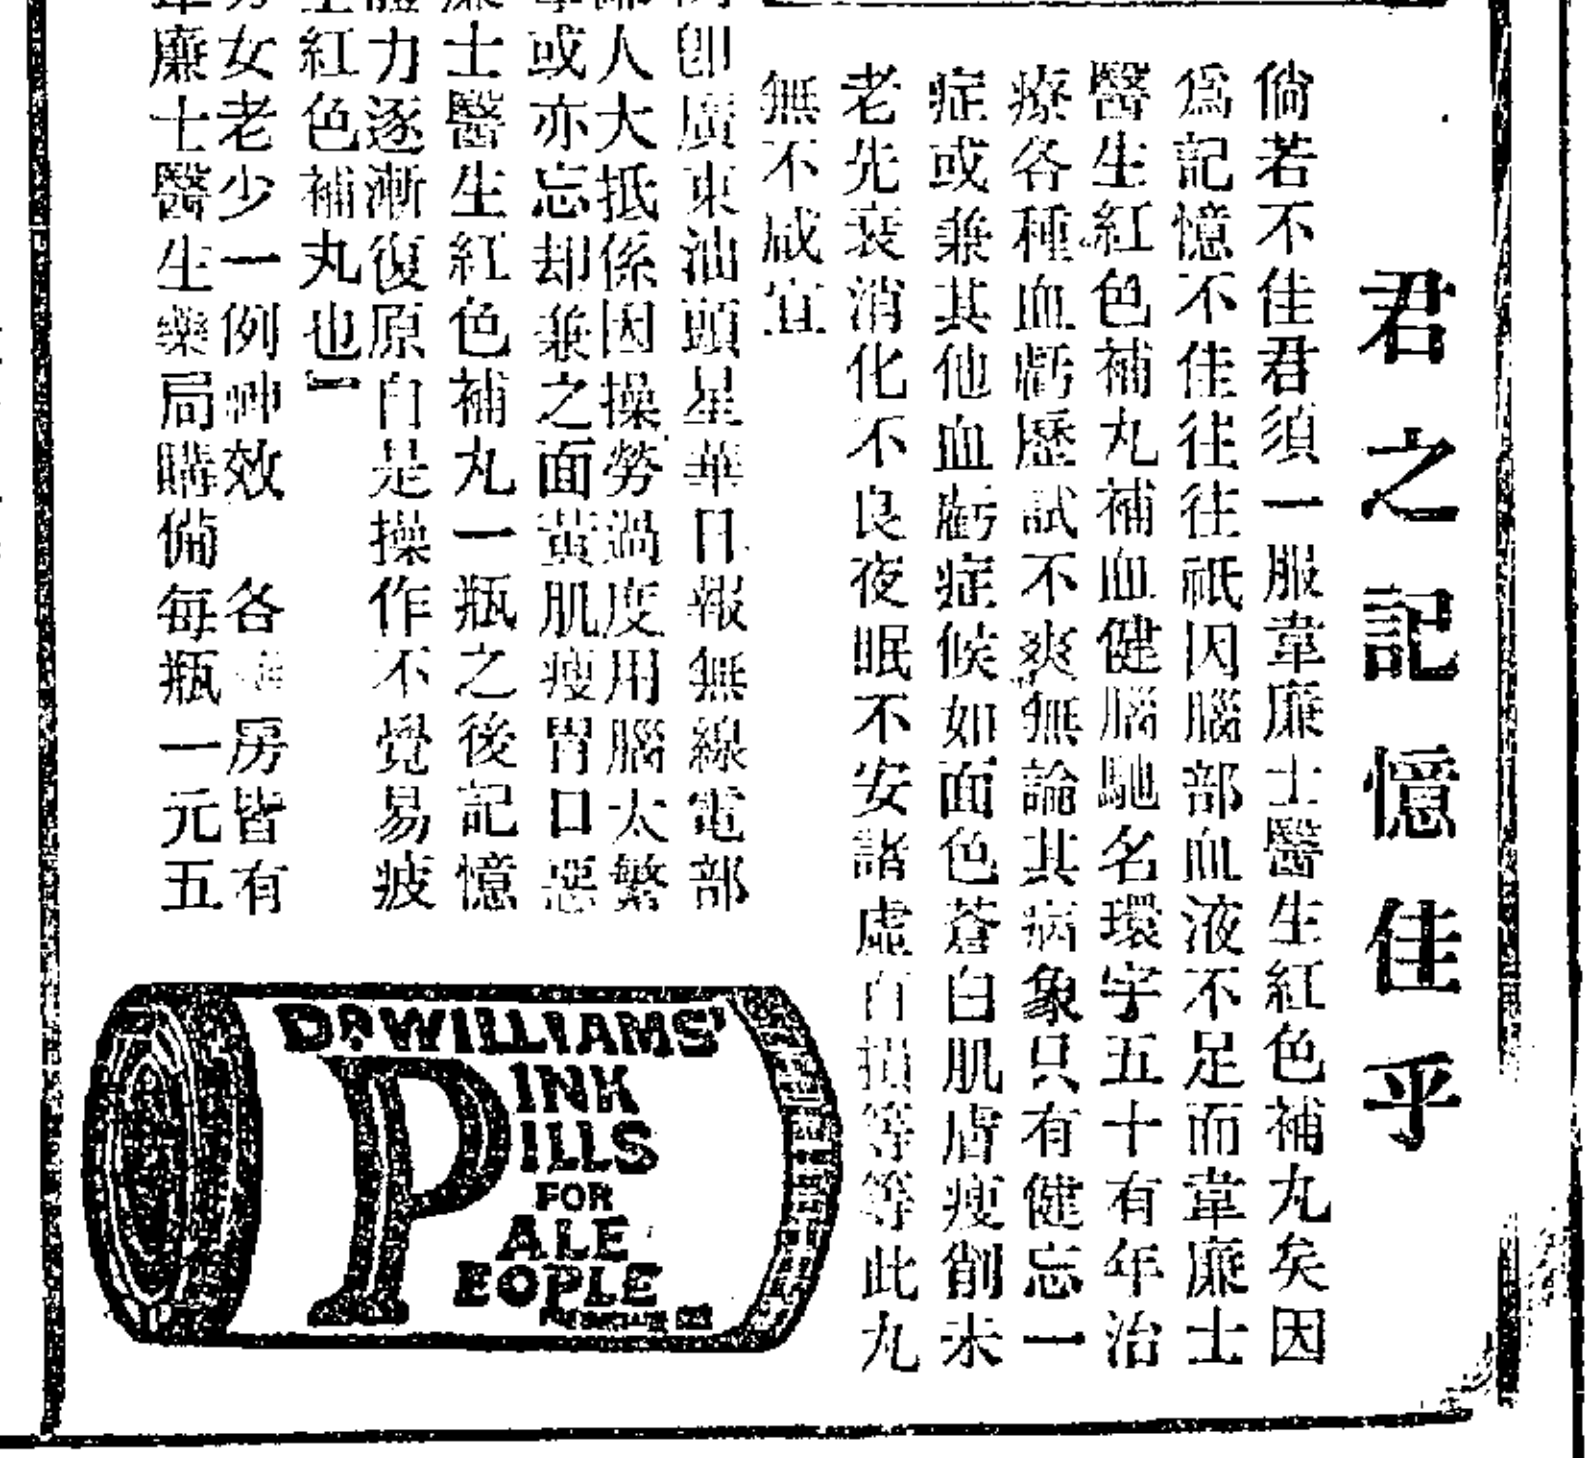 君之記憶佳乎
倘若不佳君須一服韋廉士醫生紅色補丸矣因
爲記憶不佳往往祇因腦部血液不足而韋廉士
醫生紅色補丸補血健腦馳名環宇五十有年治
療各種血虧歷試不爽無論其病象只有健忘一
症或兼其他血虧症候如面色蒼白肌膚瘦削未
老先衰消化不良夜眠不安諸虛百損等等此丸
無不咸宜
卽廣東汕頭星華日報無線電部
人大抵係因操勞過度用腦太繁
或亦忘却兼之面黃肌瘦胃口惡
士醫生紅色補丸一瓶之後記憶
力逐漸復原自是操作不覺易疲
紅色補丸也』
女老少一例神效 各 房皆有
廉士醫生藥局購備每瓶一元五
DR. WILLIAMS'
PINK
PILLS
FOR
PALE
PEOPLE